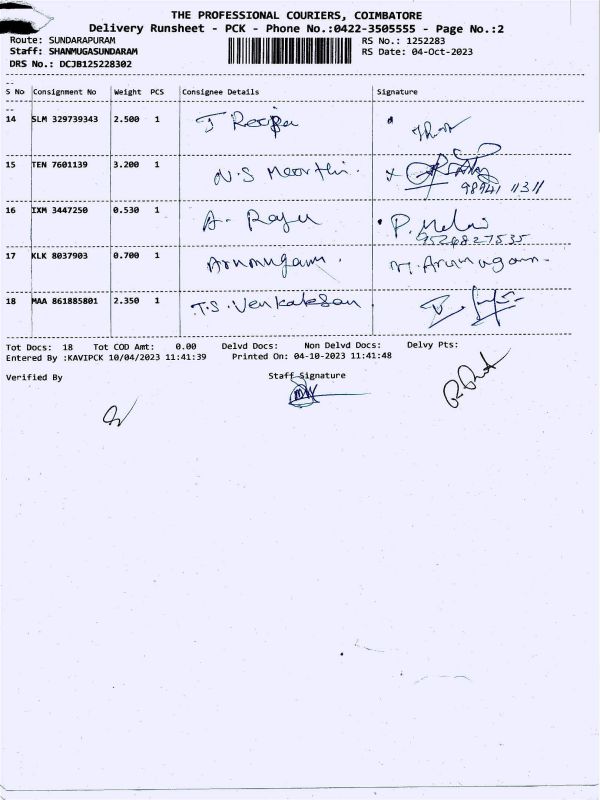 THE PROFESSIONAL COURIERS, COIMBATORE
Delivery Runsheet - PCK - Phone No.:0422-3505555 - Page No.:2
Route: SUNDARAPURAM RS No.: 1252283
Staff: SHANMUGASUNDARAM RS Date: 04-Oct-2023
DRS No.: DCJB125228302
S No Consignment No Weight PCS Consignee Details Signature
14 SLM 329739343 2.500 1 J
15 TEN 7601139 3.200 1 N.S Moorthi.
98941 11311
16 IXM 3447250 0.530 1 A. Raju P.
9524827535
17 KLK 8037903 0.700 1 Arumugam. M. Arumugam.
18 MAA 861885801 2.350 1 T.S. Venkatesan
Tot Docs: 18 Tot COD Amt: 0.00 Delvd Docs: Non Delvd Docs: Delvy Pts:
Entered By :KAVIPCK 10/04/2023 11:41:39 Printed On: 04-10-2023 11:41:48
Verified By Staff Signature